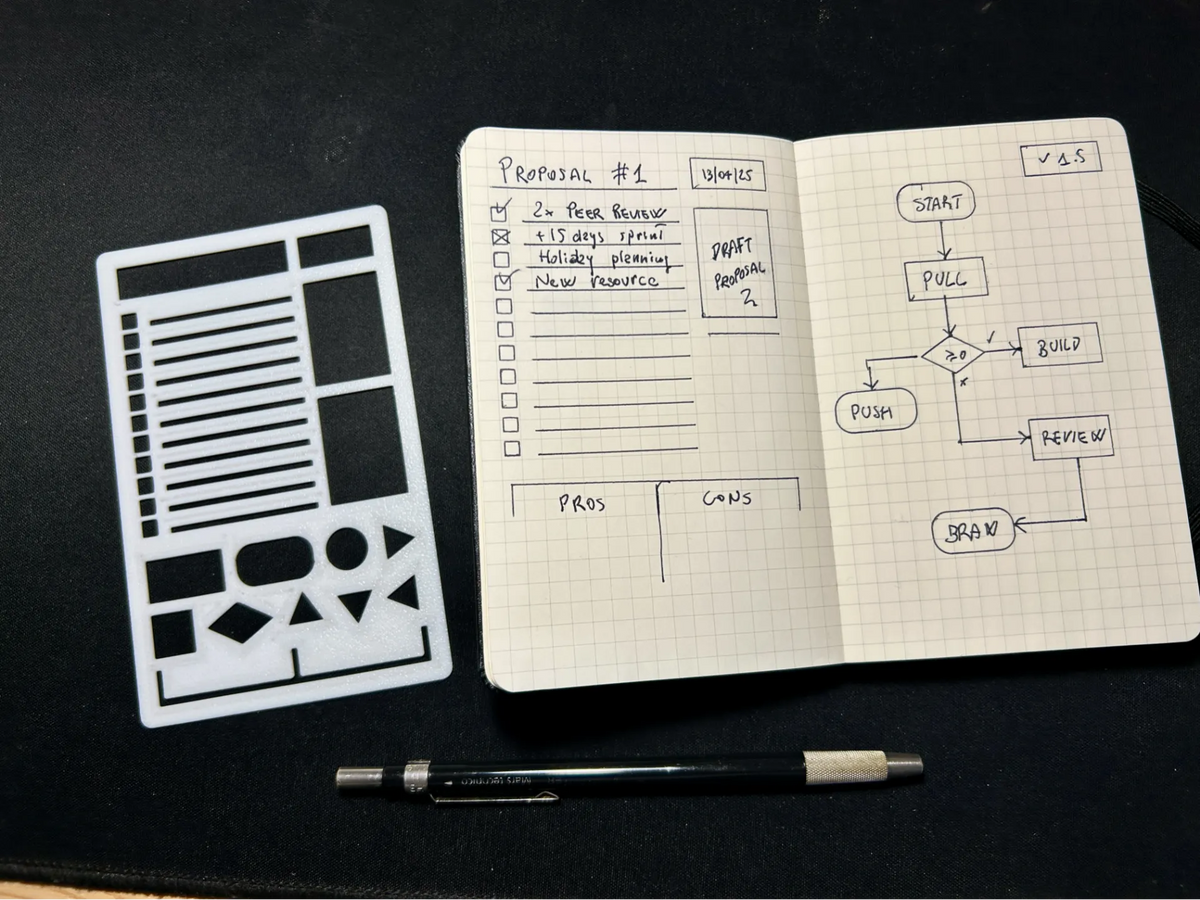 PROPOSAL #1
13/04/25
2x PEER REVIEW
+15 days sprint
Holiday planning
New resource
DRAFT
PROPOSAL
2
PROS
CONS
v 1.5
START
PULL
≥0
BUILD
PUSH
REVIEW
Mars technico